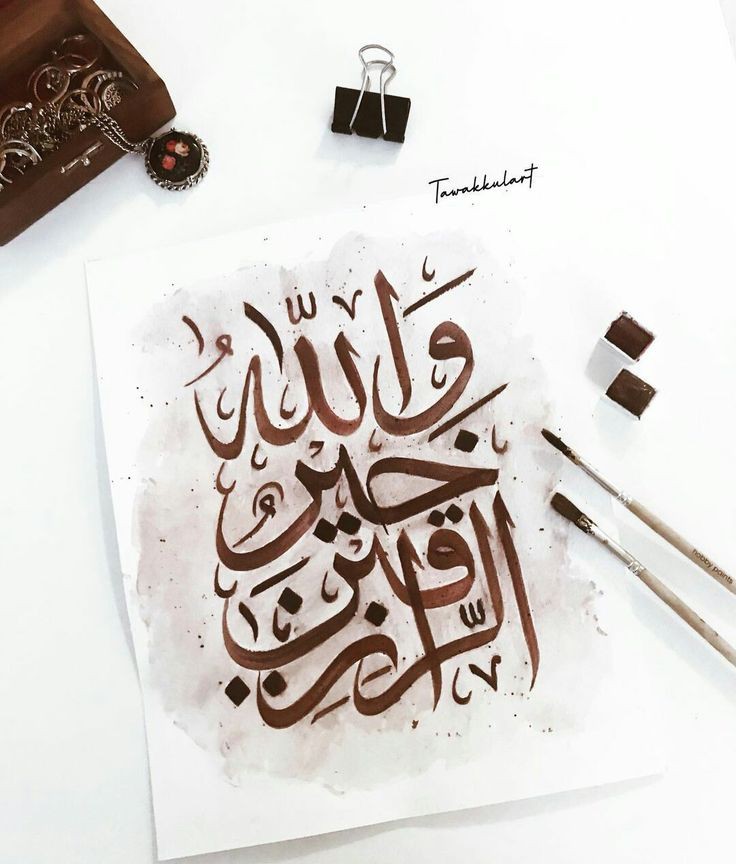 Tawakkulart
وَاللّٰهُ
خَيْرُ
الرَّازِقِينَ
hobby paints